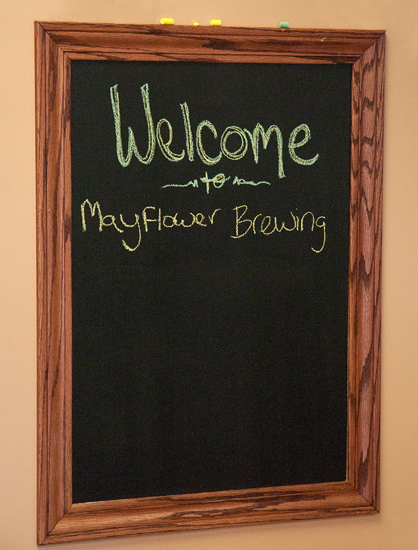 Welcome
to
Mayflower Brewing